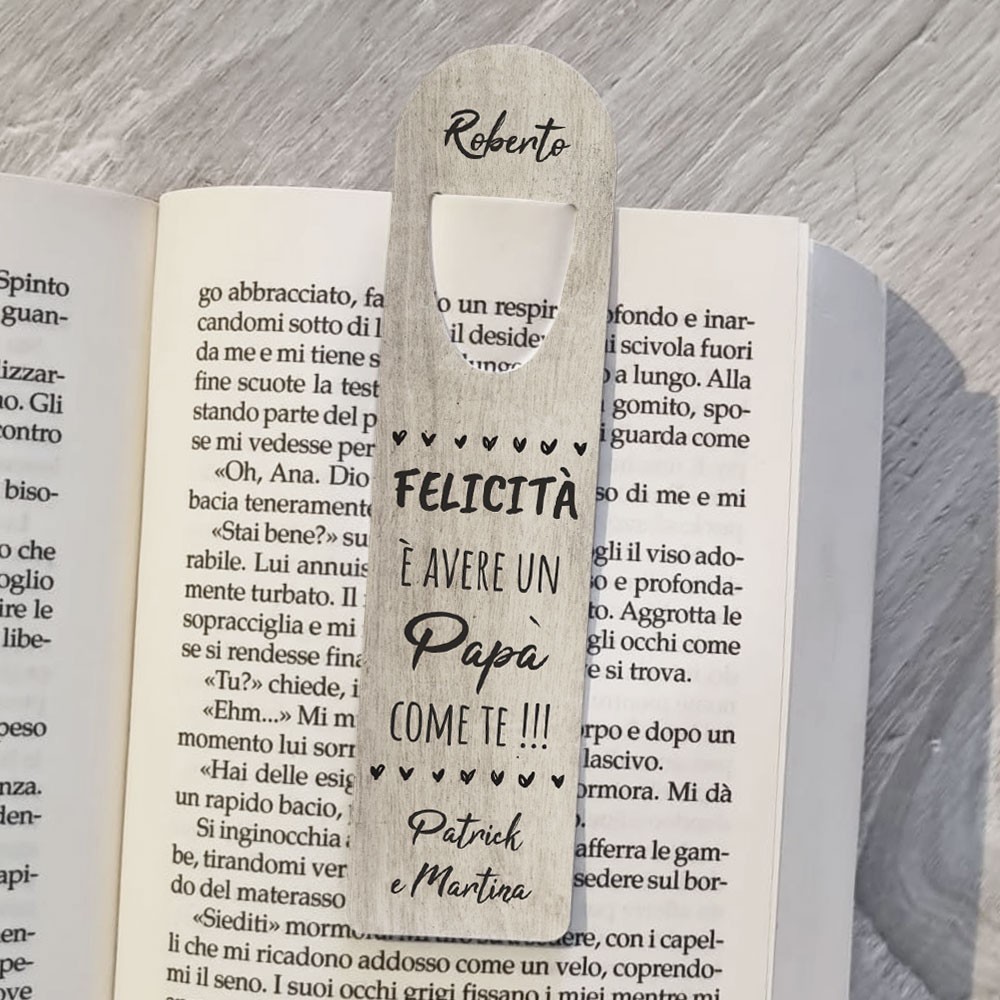 Roberto
FELICITÀ
È AVERE UN
Papà
COME TE !!!
Patrick
e Martina
Spinto
guan-
izzar-
no. Gli
contro
biso-
o che
oglio
ire le
libe-
peso
nza.
den-
api-
en-
pe-
ove
go abbracciato, fa o un respir ofondo e inar-
candomi sotto di l il deside i scivola fuori
da me e mi tiene s lungo o a lungo. Alla
fine scuote la test gomito, spo-
stando parte del p i guarda come
se mi vedesse per
«Oh, Ana. Dio so di me e mi
bacia teneramente
«Stai bene?» su gli il viso ado-
rabile. Lui annuis o e profonda-
mente turbato. Il to. Aggrotta le
sopracciglia e mi gli occhi come
se si rendesse fina e si trova.
«Tu?» chiede, i
«Ehm...» Mi m rpo e dopo un
momento lui sorr lascivo.
«Hai delle esig ormora. Mi dà
un rapido bacio,
Si inginocchia afferra le gam-
be, tirandomi ver sedere sul bor-
do del materasso
«Siediti» mormo ere, con i capel-
li che mi ricadono addosso come un velo, coprendo-
mi il seno. I suoi occhi grigi fissano i miei mentre mi